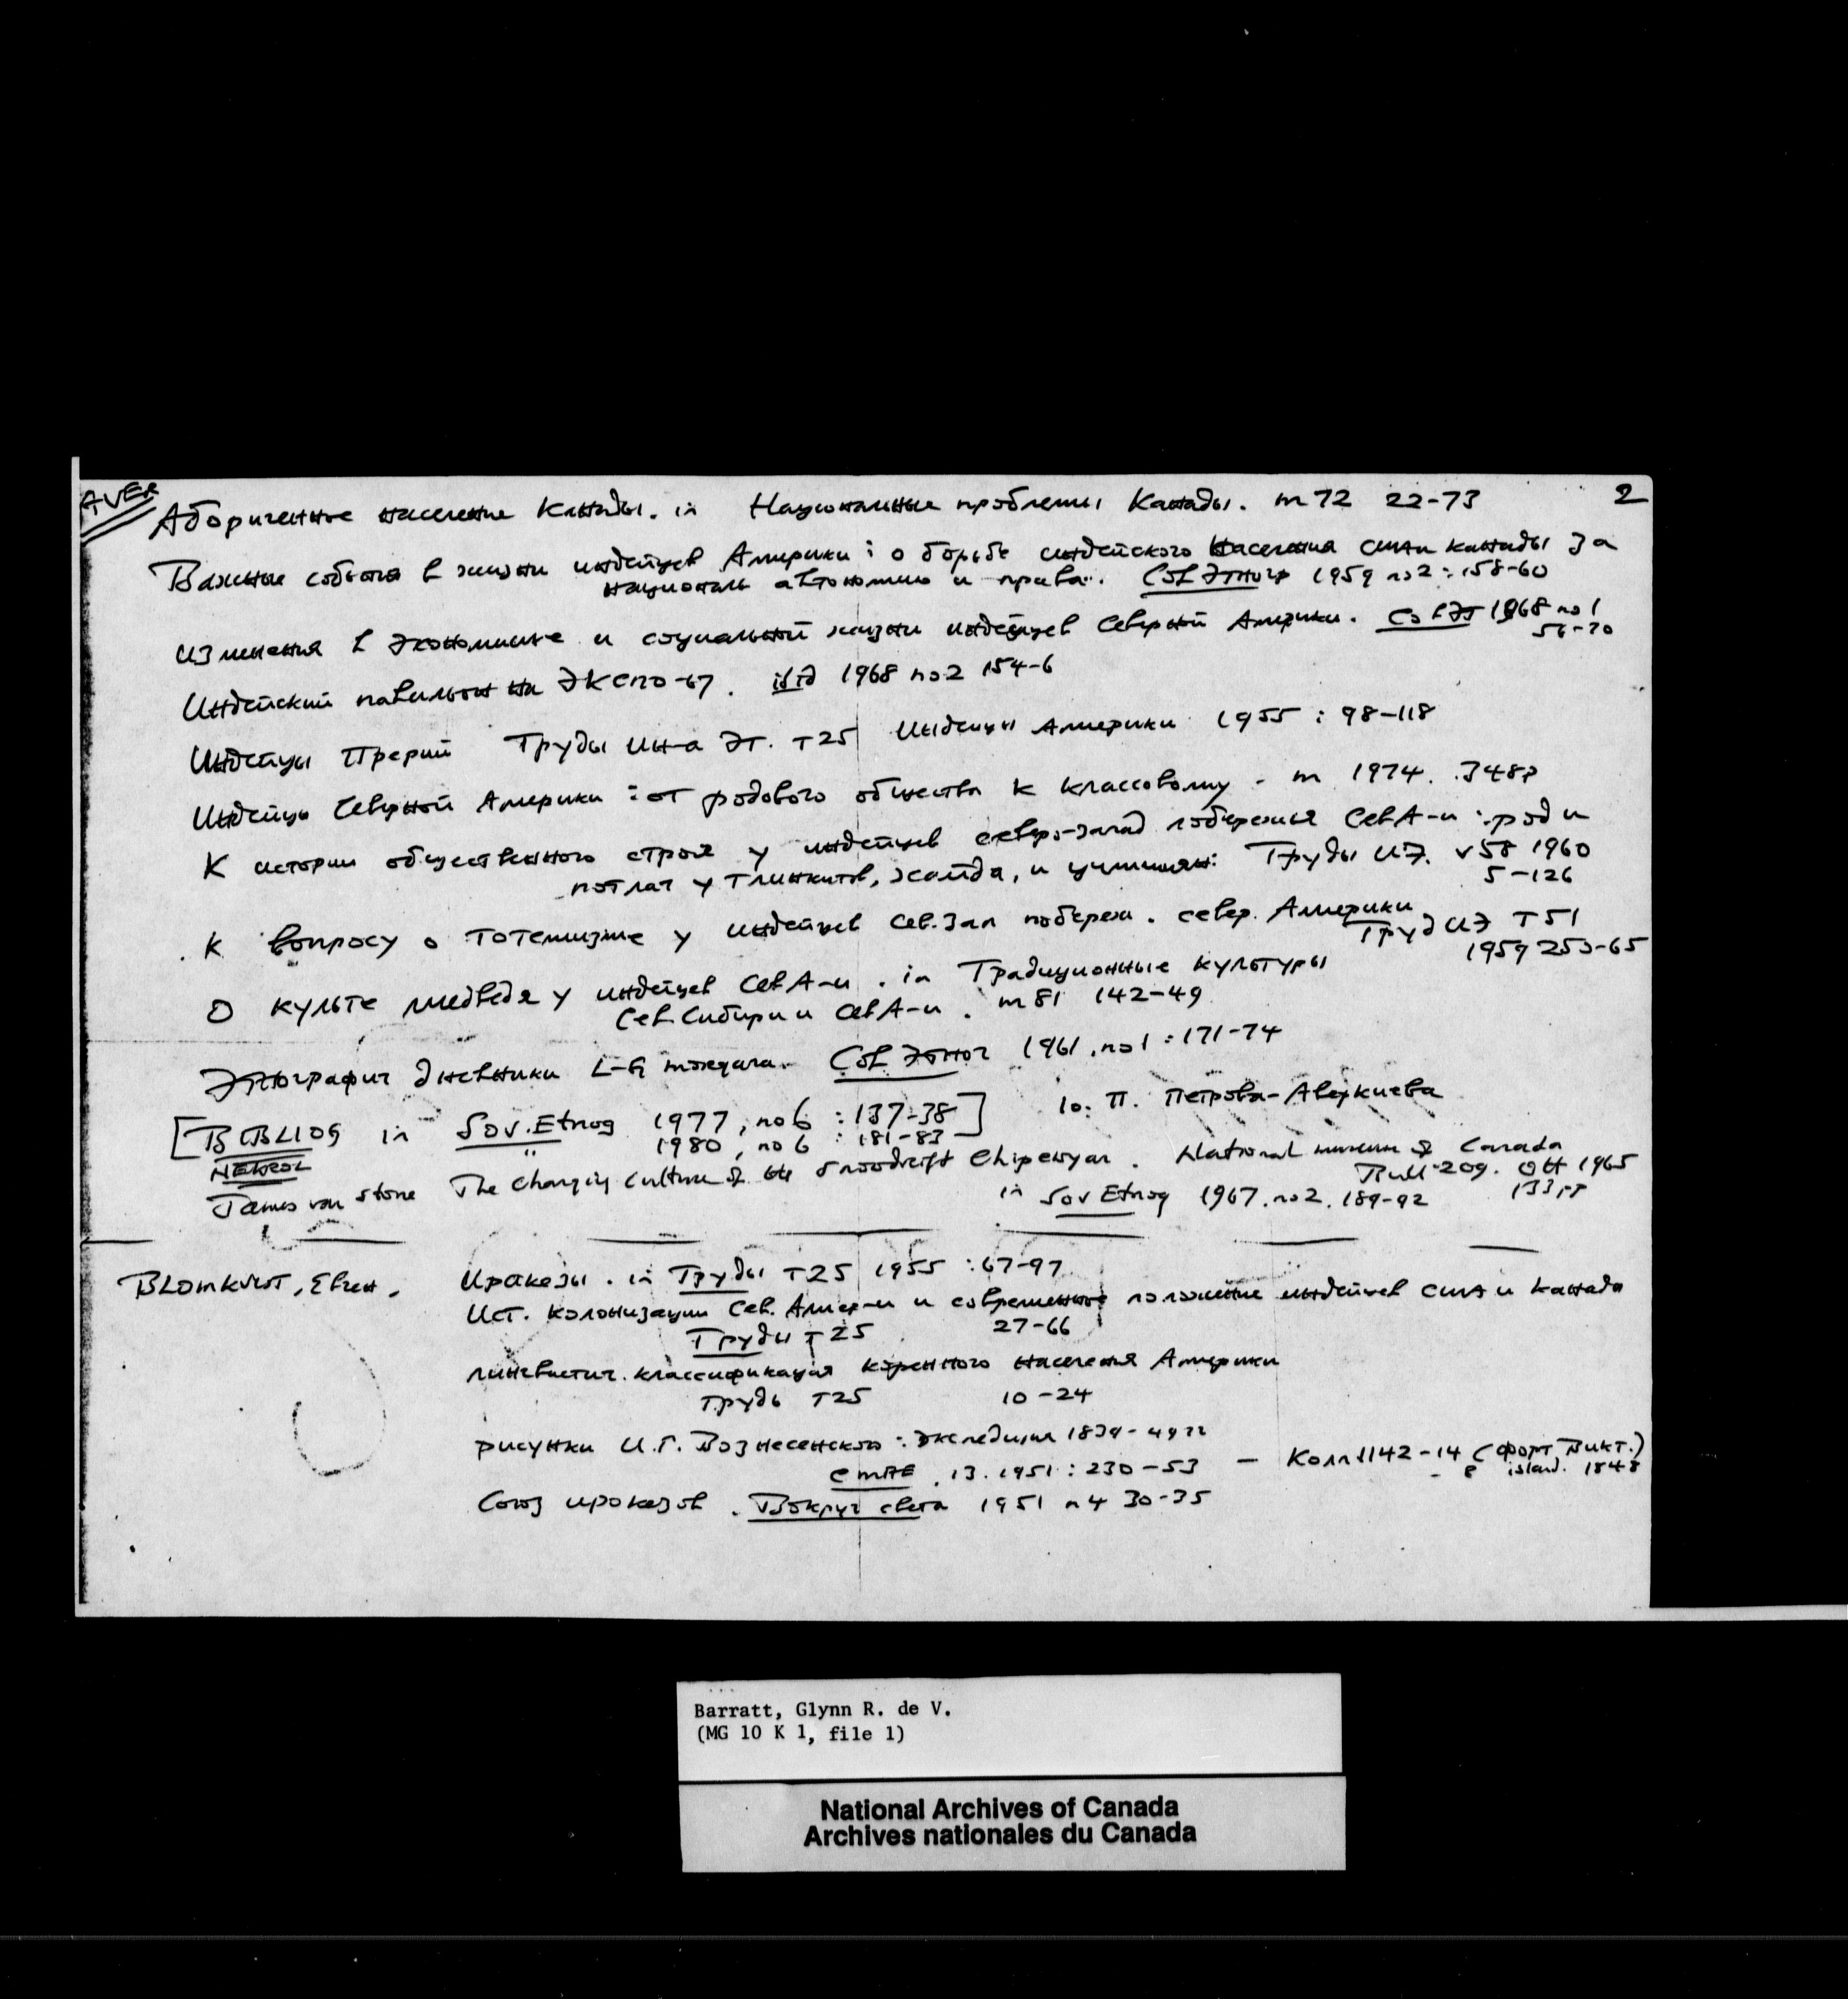 AVER
2
Аборигенное население Канады. in Национальные проблемы Канады. м72 22-73
Важные события в жизни индейцев Америки : о борьбе индейского населения сша и канады за
националь автономию и права. Сов Этногр 1959 no2 : 158-60
изменения в экономике и социальной жизни индейцев Северной Америки. Сов Эт 1968 no1
56-70
Индейский павильон на Экспо-67. ibid 1968 no2 154-6
Индейцы Прерий Труды ин-а Эт. т25 Индейцы Америки 1955 : 98-118
Индейцы Северной Америки : от родового общества к классовому. м 1974. 348p
К истории общественного строя у индейцев северо-запад побережья Сев А-и : род и
потлач у тлинкитов, хайда, и цимшиян. Труды ИЭ. v58 1960
5-126
К вопросу о тотемизме у индейцев Сев. Зап побереж. север. Америки
Труд ИЭ т51
1959 253-65
О культе медведя у индейцев Сев А-и. in Традиционные культуры
Сев. Сибири и Сев А-и. м81 142-49
Этнографич дневники L-G моргана. Сов Этног 1961. no1 : 171-74
[BIBLIOG in Sov. Etnog 1977, no6 : 137-38]
1980, no 6 : 181-83
Ю. П. Петрова-Аверкиева
NEKROL
James van stone The Changing Culture of the Snowdrift Chipewyan. National museum of Canada
Bull 209. Ott 1965
133pp
in Sov Etnog 1967. no2. 189-92
BLOMKVIST, Евген. Ирокезы. in Труды т25 1955 : 67-97
Ист. колонизации Сев. Амер-и и современное положение индейцев сша и Канада
Труды т25 27-66
лингвистич. классификация коренного населения Америки
Труды т25 10-24
рисунки И.Г. Вознесенского : экспедиция 1839-49гг
СМАЕ. 13. 1951 : 230-53 — Колл 1142-14 (форт Викт.)
island. 1848
Союз ирокезов. Вокруг света 1951 n4 30-35
Barratt, Glynn R. de V.
(MG 10 K 1, file 1)
National Archives of Canada
Archives nationales du Canada